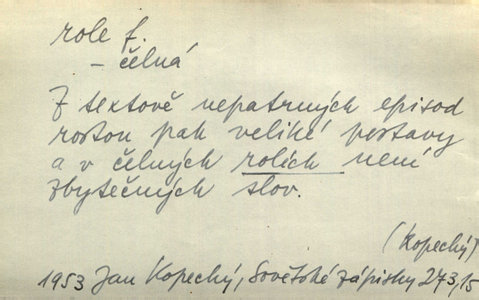 role f.
– čelná
Z textově nepatrných episod
rostou pak veliké postavy
a v čelných rolích není
zbytečných slov.
(Kopecký)
1953 Jan Kopecký, Sovětské zápisky 273,15